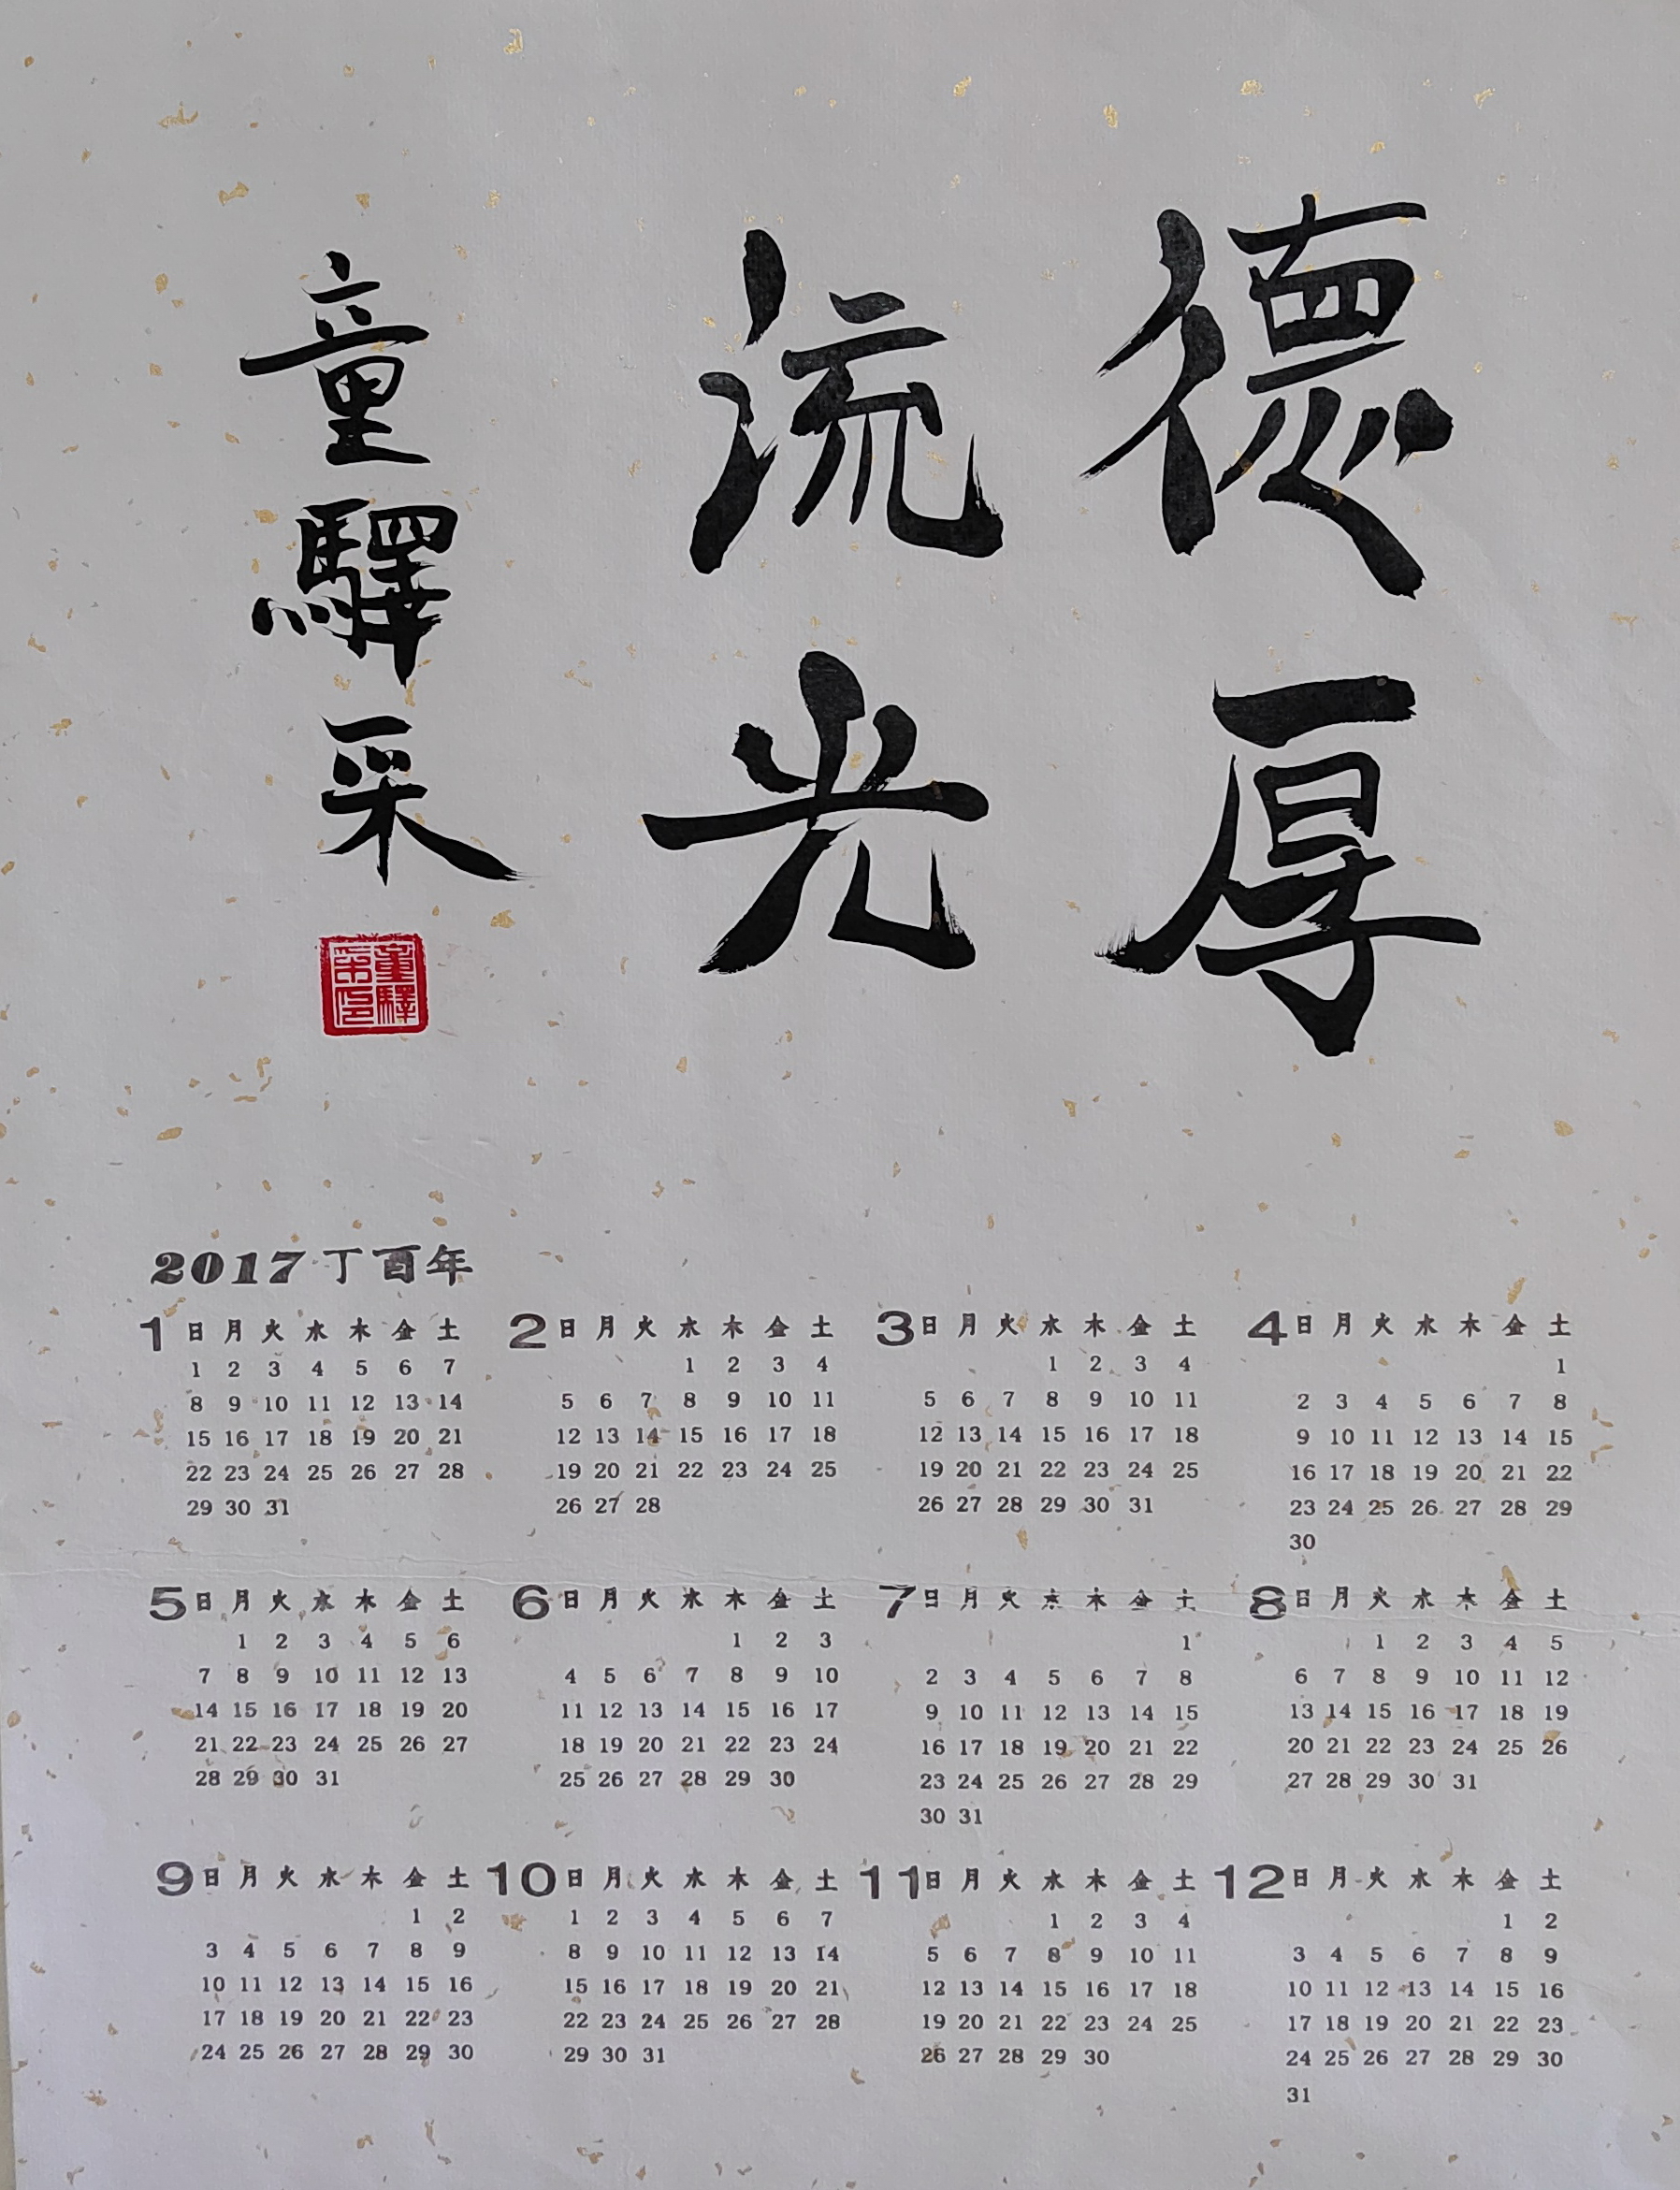 德厚
流光
童驛采
童驛
采印
2017 丁酉年
1 日 月 火 水 木 金 土
1 2 3 4 5 6 7
8 9 10 11 12 13 14
15 16 17 18 19 20 21
22 23 24 25 26 27 28
29 30 31
2 日 月 火 水 木 金 土
1 2 3 4
5 6 7 8 9 10 11
12 13 14 15 16 17 18
19 20 21 22 23 24 25
26 27 28
3 日 月 火 水 木 金 土
1 2 3 4
5 6 7 8 9 10 11
12 13 14 15 16 17 18
19 20 21 22 23 24 25
26 27 28 29 30 31
4 日 月 火 水 木 金 土
1
2 3 4 5 6 7 8
9 10 11 12 13 14 15
16 17 18 19 20 21 22
23 24 25 26 27 28 29
30
5 日 月 火 水 木 金 土
1 2 3 4 5 6
7 8 9 10 11 12 13
14 15 16 17 18 19 20
21 22 23 24 25 26 27
28 29 30 31
6 日 月 火 水 木 金 土
1 2 3
4 5 6 7 8 9 10
11 12 13 14 15 16 17
18 19 20 21 22 23 24
25 26 27 28 29 30
7 日 月 火 水 木 金 土
1
2 3 4 5 6 7 8
9 10 11 12 13 14 15
16 17 18 19 20 21 22
23 24 25 26 27 28 29
30 31
8 日 月 火 水 木 金 土
1 2 3 4 5
6 7 8 9 10 11 12
13 14 15 16 17 18 19
20 21 22 23 24 25 26
27 28 29 30 31
9 日 月 火 水 木 金 土
1 2
3 4 5 6 7 8 9
10 11 12 13 14 15 16
17 18 19 20 21 22 23
24 25 26 27 28 29 30
10 日 月 火 水 木 金 土
1 2 3 4 5 6 7
8 9 10 11 12 13 14
15 16 17 18 19 20 21
22 23 24 25 26 27 28
29 30 31
11 日 月 火 水 木 金 土
1 2 3 4
5 6 7 8 9 10 11
12 13 14 15 16 17 18
19 20 21 22 23 24 25
26 27 28 29 30
12 日 月 火 水 木 金 土
1 2
3 4 5 6 7 8 9
10 11 12 13 14 15 16
17 18 19 20 21 22 23
24 25 26 27 28 29 30
31